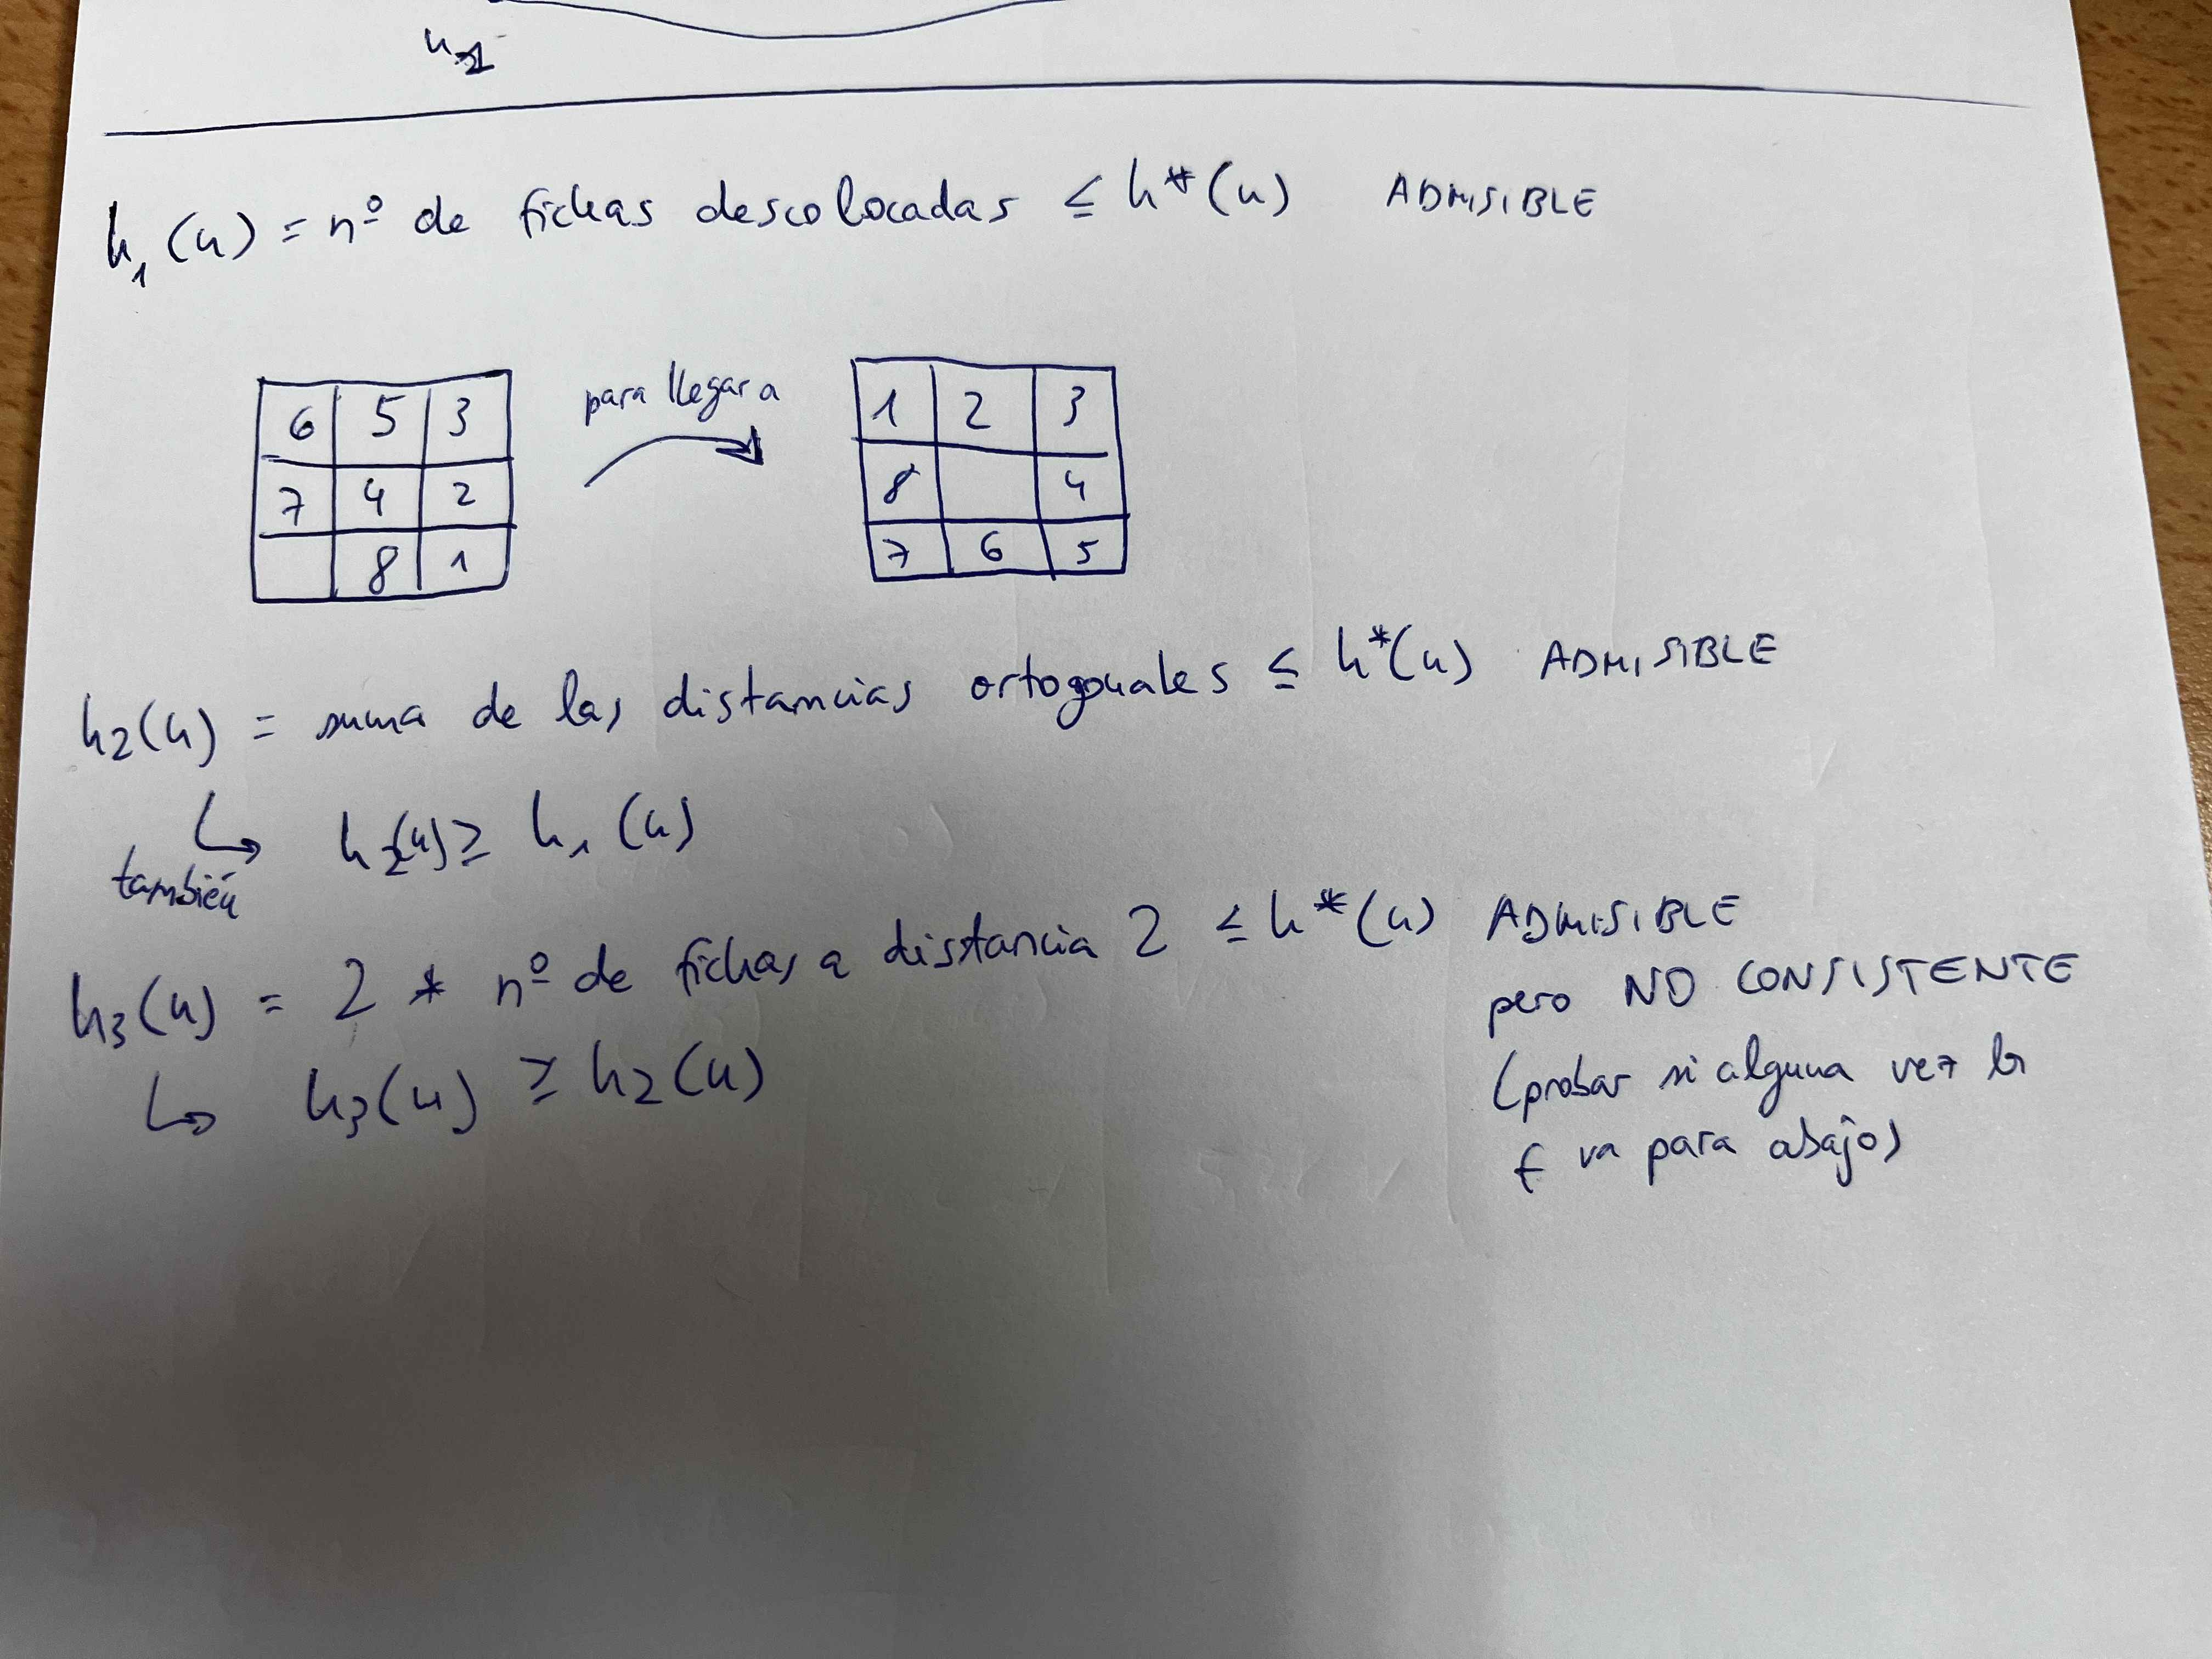 h₁(n) = nº de fichas descolocadas ≤ h*(n) ADMISIBLE
para llegar a
6 5 3
7 4 2
8 1
1 2 3
8 4
7 6 5
h₂(n) = suma de las distancias ortogonales ≤ h*(n) ADMISIBLE
también ↳ h₂(n) ≥ h₁(n)
h₃(n) = 2 * nº de fichas a distancia 2 ≤ h*(n) ADMISIBLE
pero NO CONSISTENTE
(probar si alguna vez la
f va para abajo)
↳ h₃(n) ≥ h₂(n)